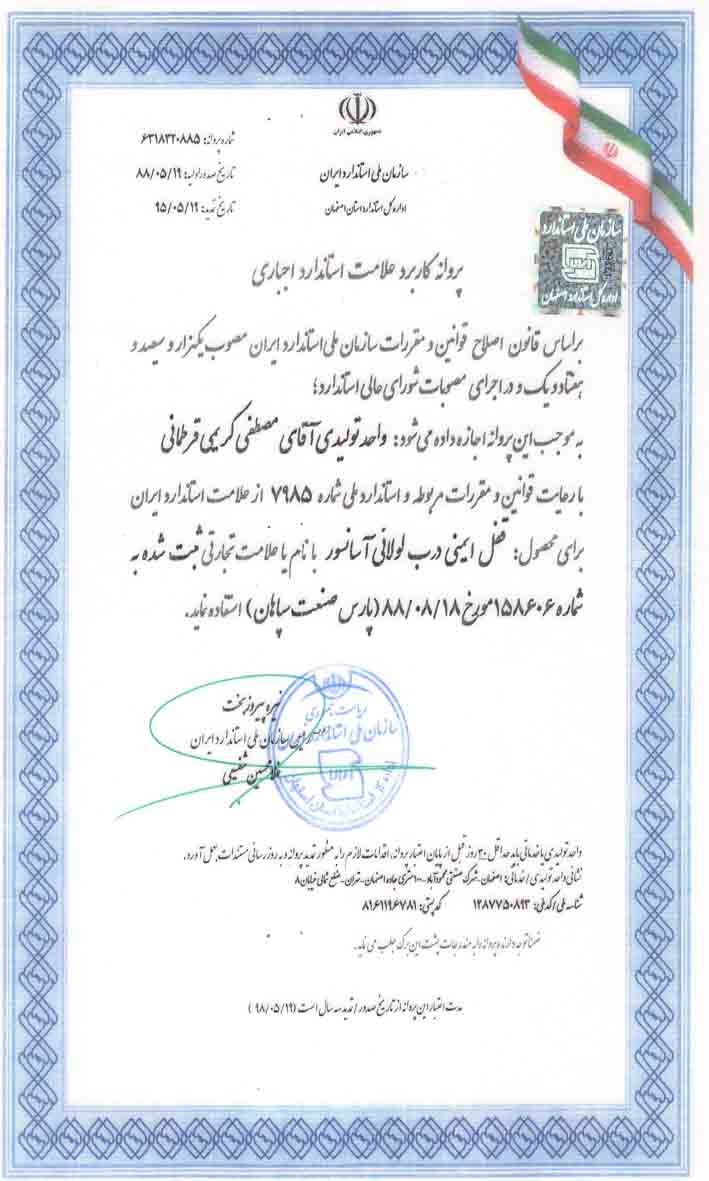 جمهوری اسلامی ایران
سازمان ملی استاندارد ایران
اداره کل استاندارد استان اصفهان
شماره پروانه: ۶۳۱۸۳۲۰۸۸۵
تاریخ صدور اولیه: ۸۸/۰۵/۱۹
تاریخ تمدید: ۹۵/۰۵/۱۹
سازمان ملی استاندارد
اداره کل استاندارد اصفهان
پروانه کاربرد علامت استاندارد اجباری
براساس قانون اصلاح قوانین و مقررات سازمان ملی استاندارد ایران مصوب یکهزار و سیصد و
هفتاد و یک و در اجرای مصوبات شورای عالی استاندارد؛
به موجب این پروانه اجازه داده می شود: واحد تولیدی آقای مصطفی کریمی قرطمانی
با رعایت قوانین و مقررات مربوطه و استاندارد ملی شماره ۷۹۸۵ از علامت استاندارد ایران
برای محصول: قفل ایمنی درب لولائی آسانسور با نام یا علامت تجارتی ثبت شده به
شماره ۱۵۸۶۰۶ مورخ ۸۸/۰۸/۱۸ (پارس صنعت سپاهان) استفاده نماید.
نیره پیروزبخت
رئیس سازمان ملی استاندارد ایران
غلامحسین شفیعی
ریاست جمهوری
سازمان ملی استاندارد ایران
واحد تولیدی یا خدماتی باید حداقل ۳۰ روز قبل از پایان اعتبار پروانه، اقدامات لازم را به منظور تمدید پروانه و به روز رسانی مستندات بعمل آورد.
نشانی واحد تولیدی / خدماتی: اصفهان - شهرک صنعتی محمودآباد - ۲۰ متری جاده اصفهان - تهران - ضلع شمالی خیابان ۸
شناسه ملی/کد ملی: ۱۲۸۷۷۵۰۸۹۳ کد پستی: ۸۱۶۱۱۹۶۷۸۱
ضمناً توجه دارنده پروانه را به مندرجات پشت این برگ جلب می نماید.
مدت اعتبار این پروانه از تاریخ صدور / تمدید سه سال است (۹۸/۰۵/۱۹)